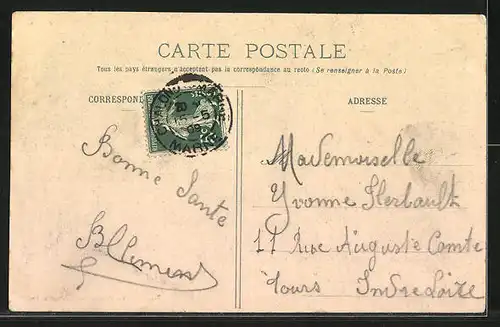 CARTE POSTALE
Tous les pays étrangers n'acceptent pas la correspondance au recto (Se renseigner à la Poste)
CORRESPOND
ADRESSE
CHALONS MARNE
MARNE
Bonne Santé
BClement
Mademoiselle
Yvonne Herbault
11 Rue Auguste Comte
Tours Indre Loire